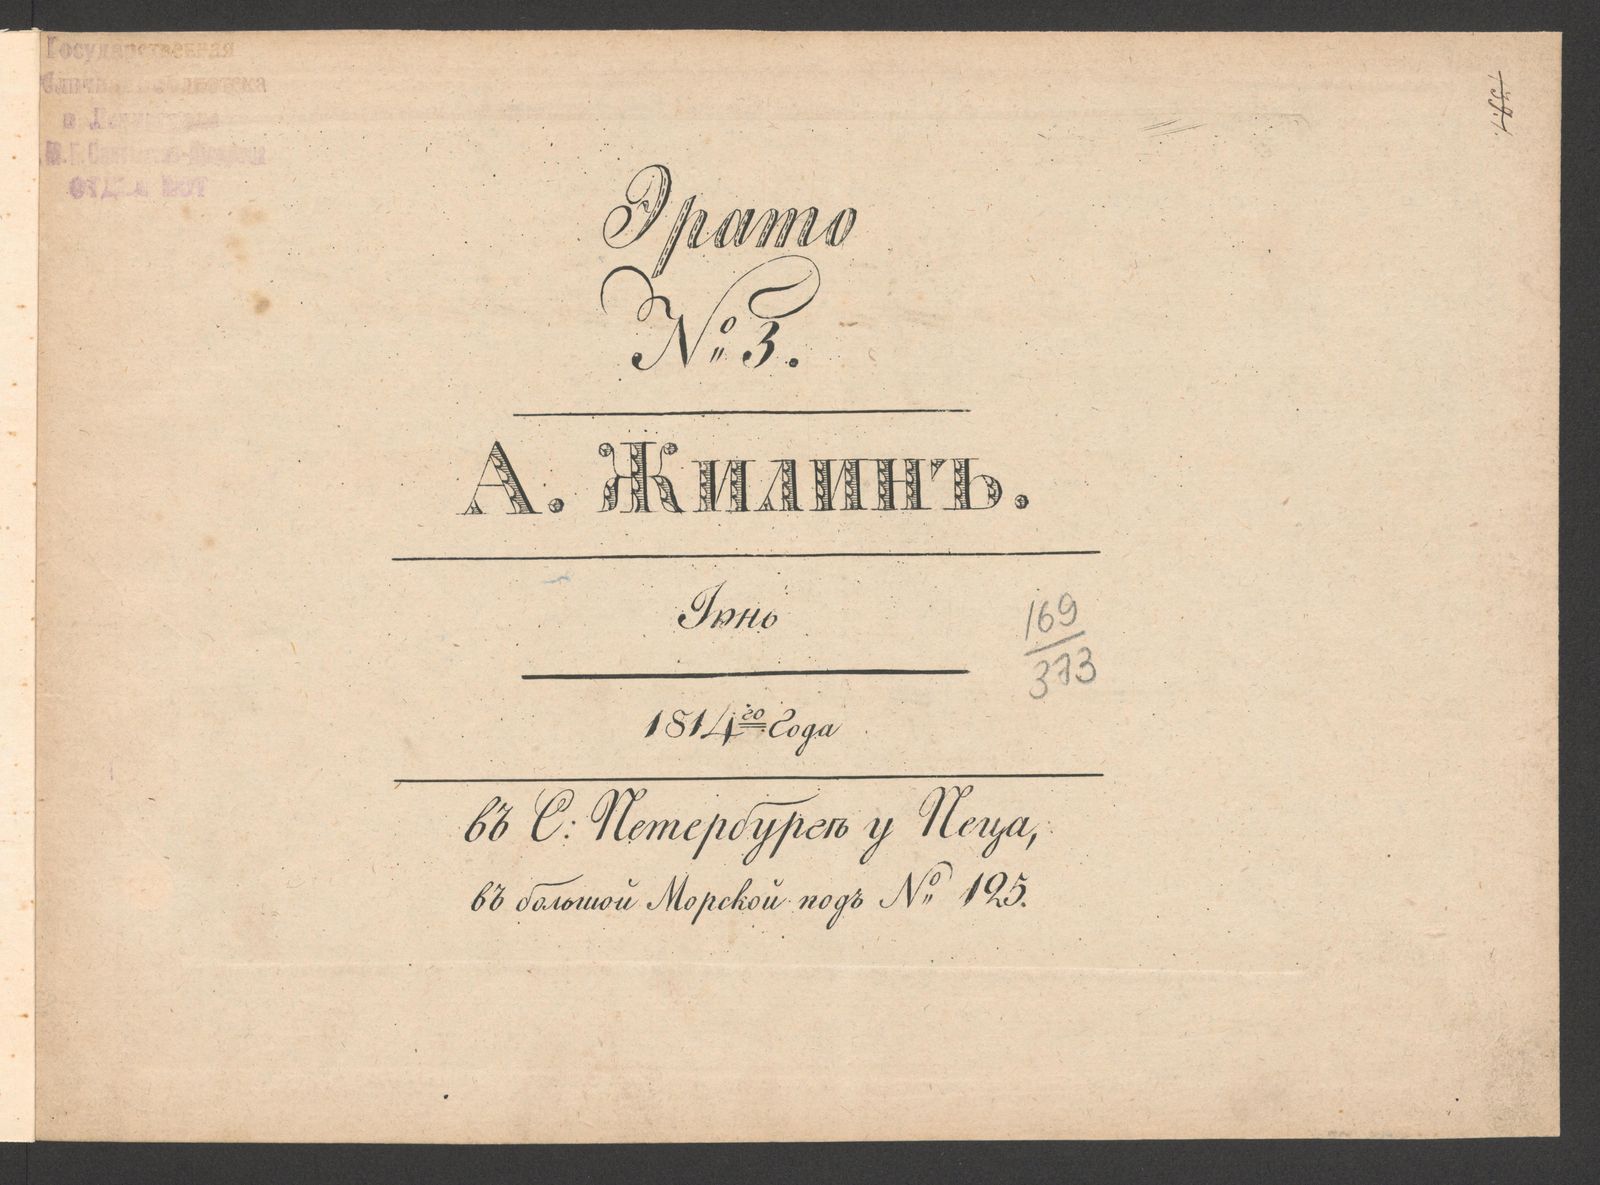 Государственная
Публичная Библиотека
в Ленинграде
ОТДЕЛ НОТ
Эрато
№ 3.
А. Жилинъ.
Іюнь
169
373
1814го Года
въ С: Петербургѣ у Пеца,
въ большой Морской подъ № 125.